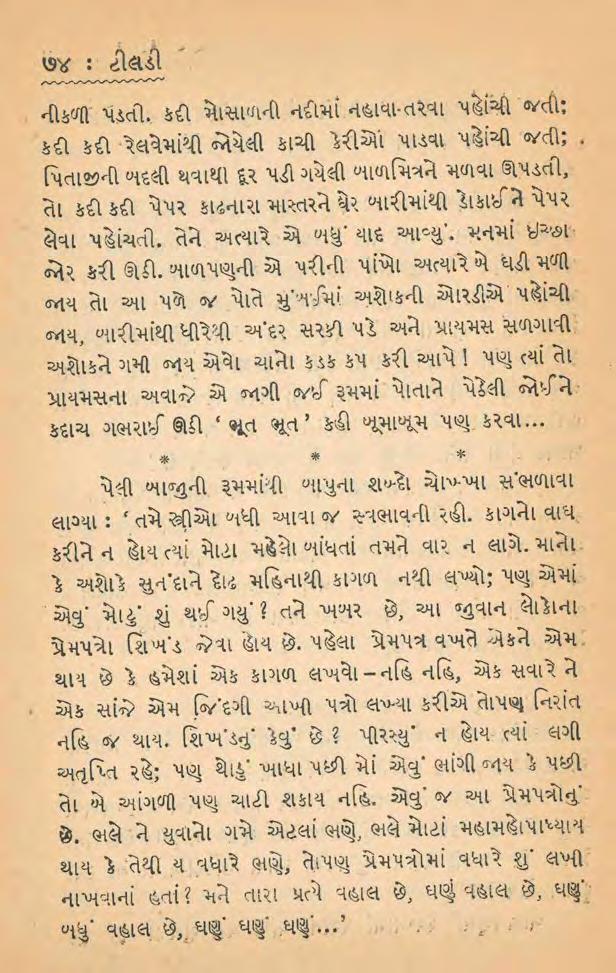 ૭૪ : ટીલડી
નીકળી પડતી. કદી મોસાળની નદીમાં નહાવા-તરવા પહોંચી જતી;
કદી કદી રેલવેમાંથી જોયેલી કાચી કેરીઓ પાડવા પહોંચી જતી;
પિતાજીની બદલી થવાથી દૂર પડી ગયેલી બાળમિત્રને મળવા ઊપડતી,
તો કદી કદી પેપર કાઢનારા માસ્તરને ઘેર બારીમાંથી ડોકાઈ ને પેપર
લેવા પહોંચતી. તેને અત્યારે એ બધું યાદ આવ્યું. મનમાં ઇચ્છા
જોર કરી ઊઠી. બાળપણની એ પરીની પાંખો અત્યારે બે ઘડી મળી
જાય તો આ પળે જ પોતે મુંબઈમાં અશોકની ઓરડીએ પહોંચી
જાય, બારીમાંથી ધીરેથી અંદર સરકી પડે અને પ્રાયમસ સળગાવી
અશોકને ગમી જાય એવો ચાનો કડક કપ કરી આપે! પણ ત્યાં તો
પ્રાયમસના અવાજે એ જાગી જઈ રૂમમાં પોતાને પેઠેલી જોઈ ને
કદાચ ગભરાઈ ઊઠી ‘ ભૂત ભૂત ’ કહી બૂમાબૂમ પણ કરવા...
* * *
પેલી બાજુની રૂમમાંથી બાપુના શબ્દો ચોખ્ખા સંભળાવા
લાગ્યા : ‘ તમે સ્ત્રીઓ બધી આવા જ સ્વભાવની રહી. કાગનો વાઘ
કરીને ન હોય ત્યાં મોટા મહેલો બાંધતાં તમને વાર ન લાગે. માનો
કે અશોકે સુનંદાને દોઢ મહિનાથી કાગળ નથી લખ્યો; પણ એમાં
એવું મોટું શું થઈ ગયું? તને ખબર છે, આ જુવાન લોકોના
પ્રેમપત્રો શિખંડ જેવા હોય છે. પહેલા પ્રેમપત્ર વખતે એકને એમ
થાય છે કે હમેશાં એક કાગળ લખવો – નહિ નહિ, એક સવારે ને
એક સાંજે એમ જિંદગી આખી પત્રો લખ્યા કરીએ તોપણ નિરાંત
નહિ જ થાય. શિખંડનું કેવું છે? પીરસ્યું ન હોય ત્યાં લગી
અતૃપ્તિ રહે; પણ થોડું ખાધા પછી મોં એવું ભાંગી જાય કે પછી
તો બે આંગળી પણ ચાટી શકાય નહિ. એવું જ આ પ્રેમપત્રોનું
છે. ભલે ને યુવાનો ગમે એટલાં ભણે, ભલે મોટાં મહામહોપાધ્યાય
થાય કે તેથી ય વધારે ભણે, તોપણ પ્રેમપત્રોમાં વધારે શું લખી
નાખવાનાં હતાં? મને તારા પ્રત્યે વહાલ છે, ઘણું વહાલ છે, ઘણું
બધું વહાલ છે, ઘણું ઘણું ઘણું...’